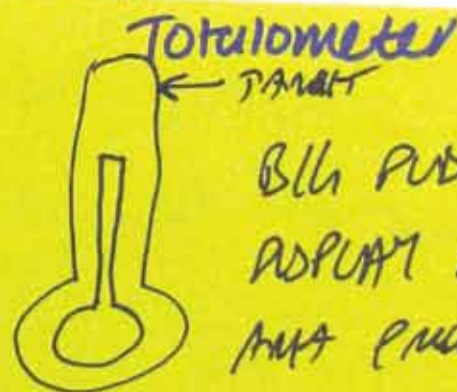 Totalometer
TARGET
BIG PUB
DISPLAY
AMA